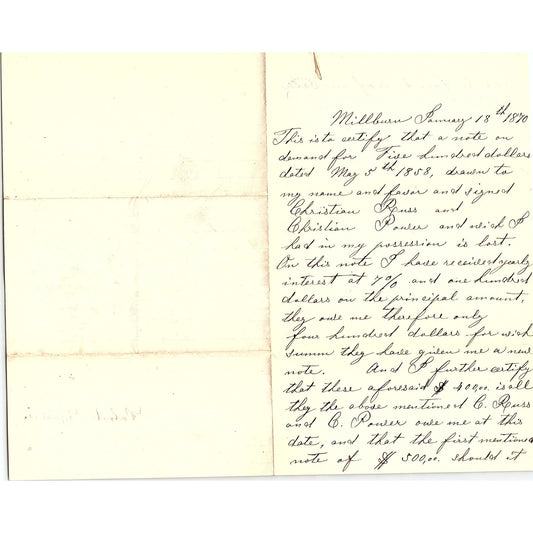 Millburn January 18th 1870
This is to certify that a note on
demand for Five hundred dollars
dated May 5th 1858, drawn to
my name and favor and signed
Christian Russ and
Christian Power and wich I
had in my possession is lost.
On this note I have received yearly
interest at 7% and one hundred
dollars on the principal amount,
they owe me therefore only
four hundred dollars for wich
summ they have given me a new
note. And I further certify
that these aforesaid $ 400,00 is all
they the above mentioned C. Russ
and C. Power owe me at this
date, and that the first mentioned
note of $ 500,00. should it